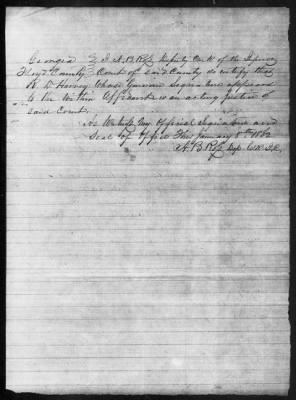 Georgia } I A. B. Ross Deputy Clerk of the Superior
Floyd County } Court of said County do certify that
R. D. Harvey whose genuine signature appears
to the within Affidavit is an acting Justice of
said Court.
As Witness my Official signature and
Seal of Office This January 8th 1862
A. B. Ross Dep. Clk. S.C.